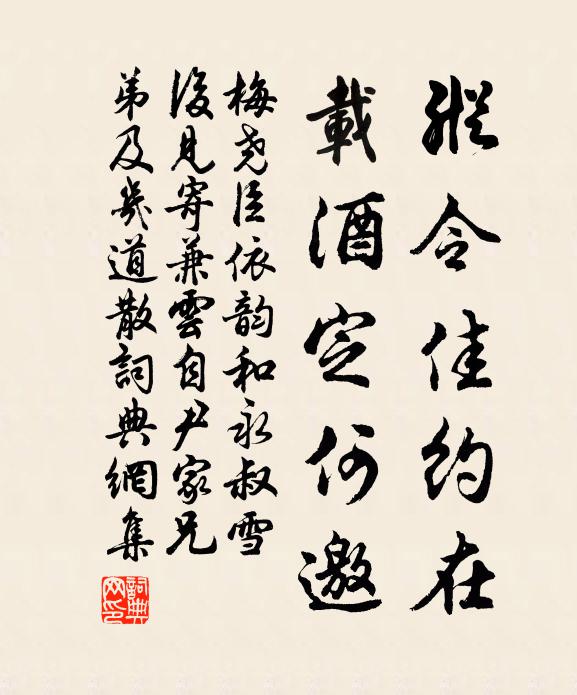 縱令佳約在
載酒定何邀
梅堯臣依韵和永叔雪
後見寄兼雲自尹家兄
弟及幾道散詞典網集
詞典網印